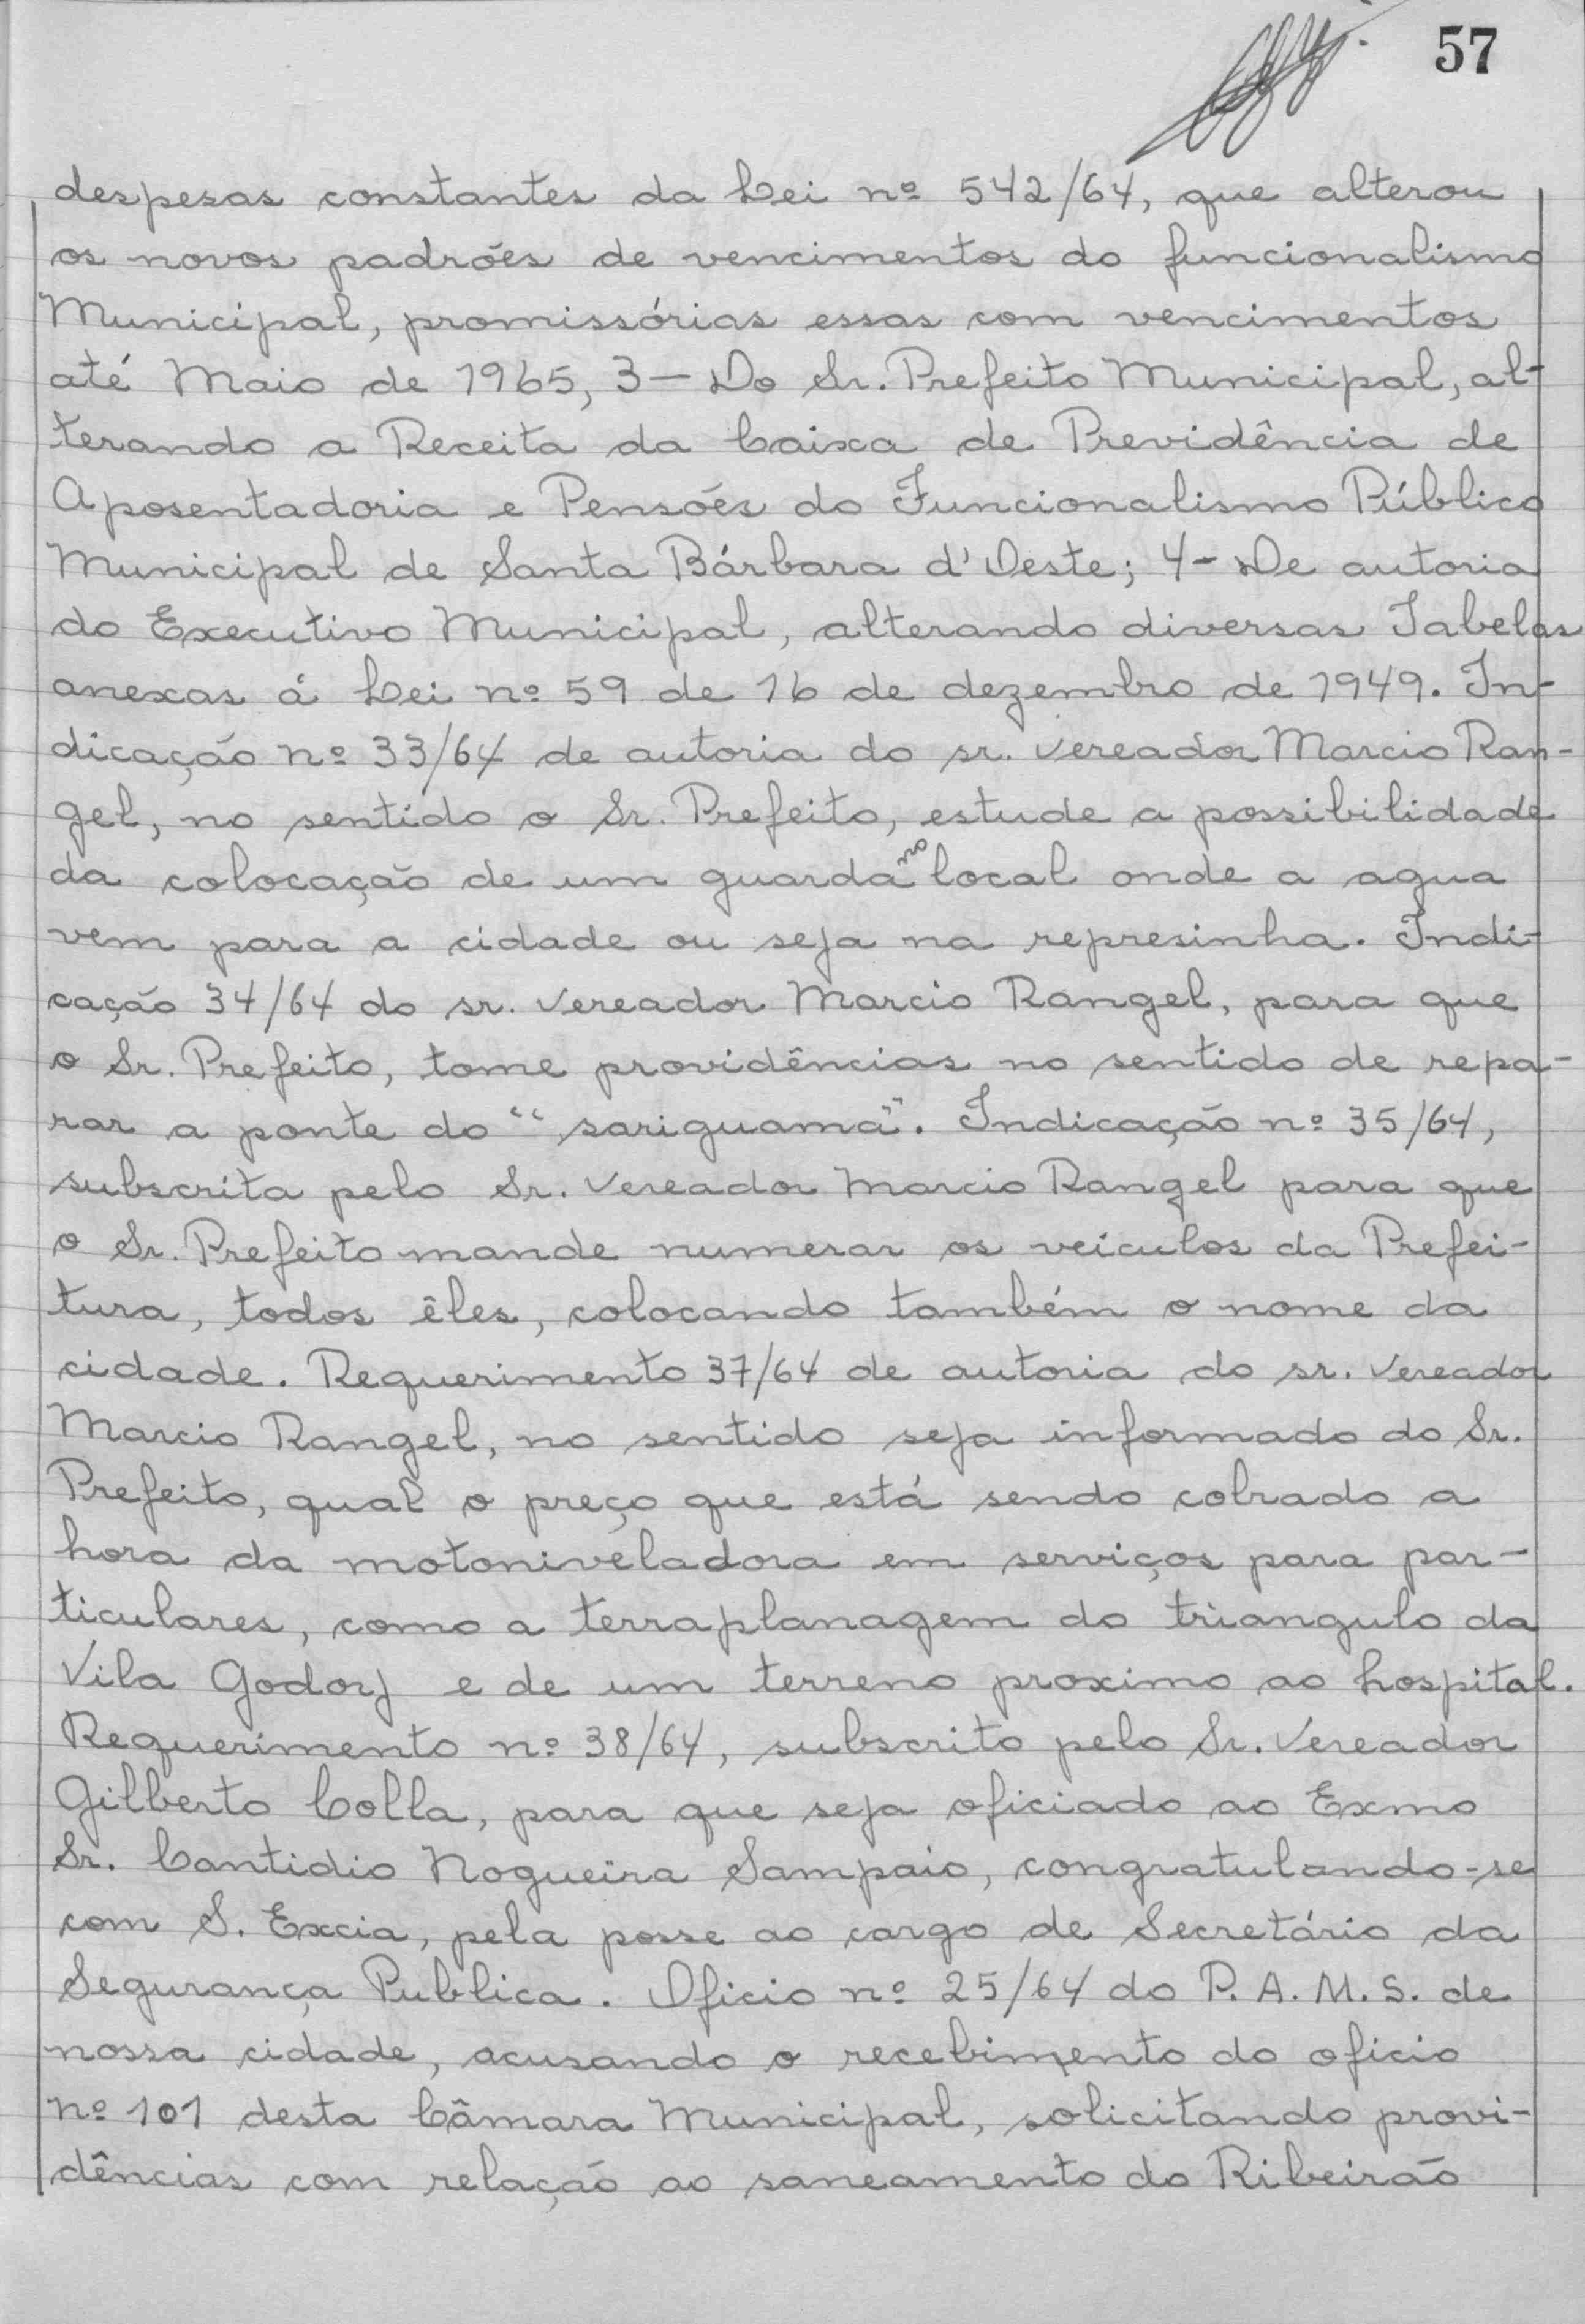 57
despesas constantes da Lei nº 542/64, que alterou
os novos padrões de vencimentos do funcionalismo
Municipal, promissórias essas com vencimentos
até Maio de 1965, 3 - Do Sr. Prefeito Municipal, al-
terando a Receita da Caixa de Previdência de
Aposentadoria e Pensões do Funcionalismo Público
Municipal de Santa Bárbara d'Oeste; 4 - De autoria
do Executivo Municipal, alterando diversas Tabelas
anexas á Lei nº 59 de 16 de dezembro de 1949. In-
dicação nº 33/64 de autoria do sr. vereador Marcio Ran-
gel, no sentido o Sr. Prefeito, estude a possibilidade
da colocação de um guarda no local onde a agua
vem para a cidade ou seja na represinha. Indi-
cação 34/64 do sr. vereador Marcio Rangel, para que
o Sr. Prefeito, tome providências no sentido de repa-
rar a ponte do "sariguamã". Indicação nº 35/64,
subscrita pelo Sr. Vereador Marcio Rangel para que
o Sr. Prefeito mande numerar os veículos da Prefei-
tura, todos êles, colocando também o nome da
cidade. Requerimento 37/64 de autoria do sr. vereador
Marcio Rangel, no sentido seja informado do Sr.
Prefeito, qual o preço que está sendo cobrado a
hora da motoniveladora em serviços para par-
ticulares, como a terraplanagem do triangulo da
Vila Godoy e de um terreno proximo ao hospital.
Requerimento nº 38/64, subscrito pelo Sr. Vereador
Gilberto Colla, para que seja oficiado ao Exmo
Sr. Cantidio Nogueira Sampaio, congratulando-se
com S. Excia, pela posse ao cargo de Secretário da
Segurança Publica. Oficio nº 25/64 do P. A. M. S. de
nossa cidade, acusando o recebimento do oficio
nº 101 desta Câmara Municipal, solicitando provi-
dências com relação ao saneamento do Ribeirão